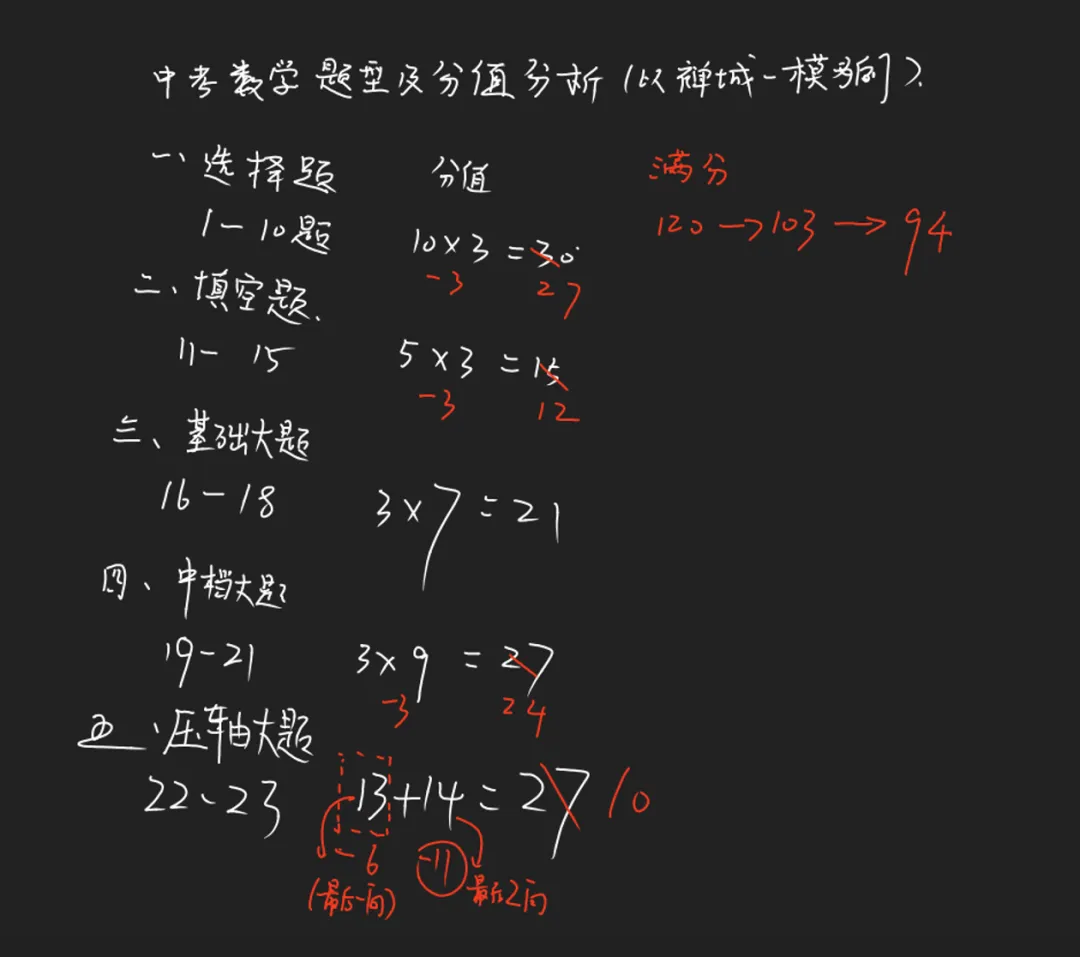 中考数学题型及分值分析（以禅城一模为例）.
一、选择题 分值 满分
1－10题 10×3＝30 120→103→94
－3 27
二、填空题.
11－15 5×3＝15
－3 12
三、基础大题
16－18 3×7＝21
四、中档大题
19－21 3×9＝27
－3 24
五、压轴大题
22、23 13+14＝27 10
－6 －11
(最后一问) 最后2问